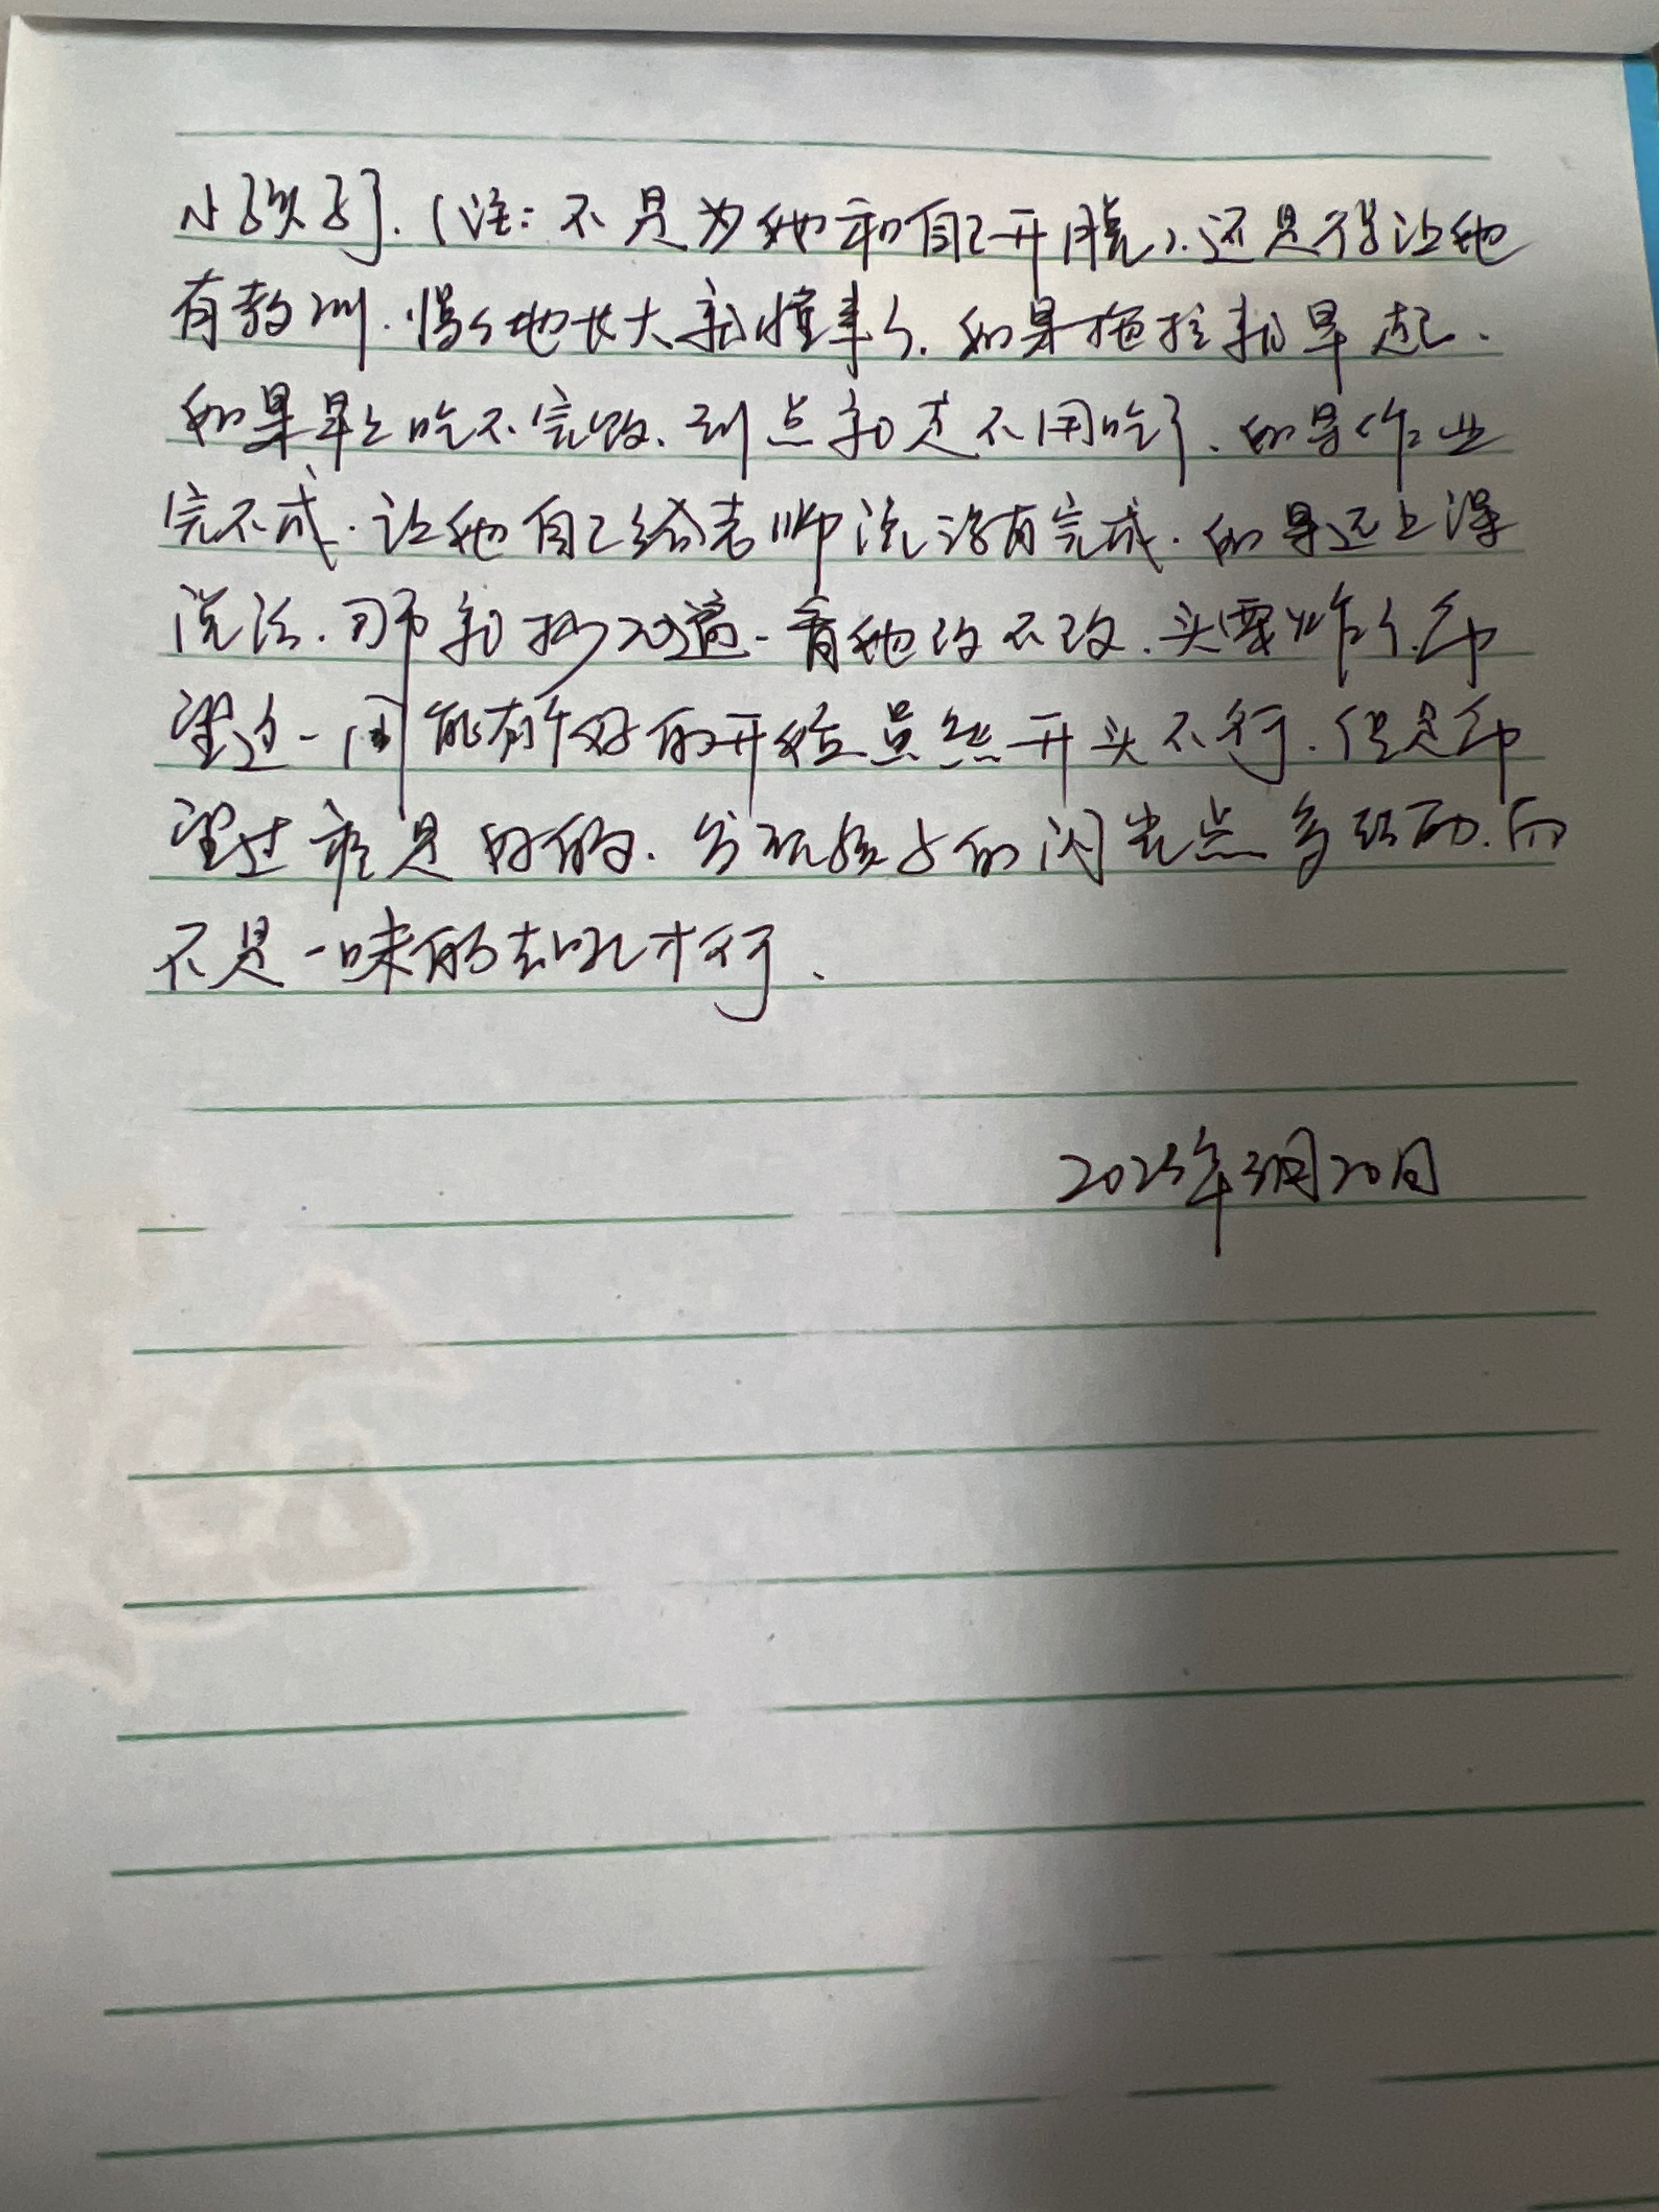 小孩子].(注:不是为他和自己开脱).还是得让他
有教训.慢慢地长大就懂事了.如果拖拉就早起.
如果早上吃不完饭.到点就走不用吃了.如果作业
完不成.让他自己给老师说没有完成.如果还上课
说话.那就抄20遍.看他改不改.头要炸了.希
望这一周能有个好的开始虽然开头不行.但是希
望过程是好的.发现孩子的闪光点多鼓励.而
不是一味的去吼才行.
2025年3月20日